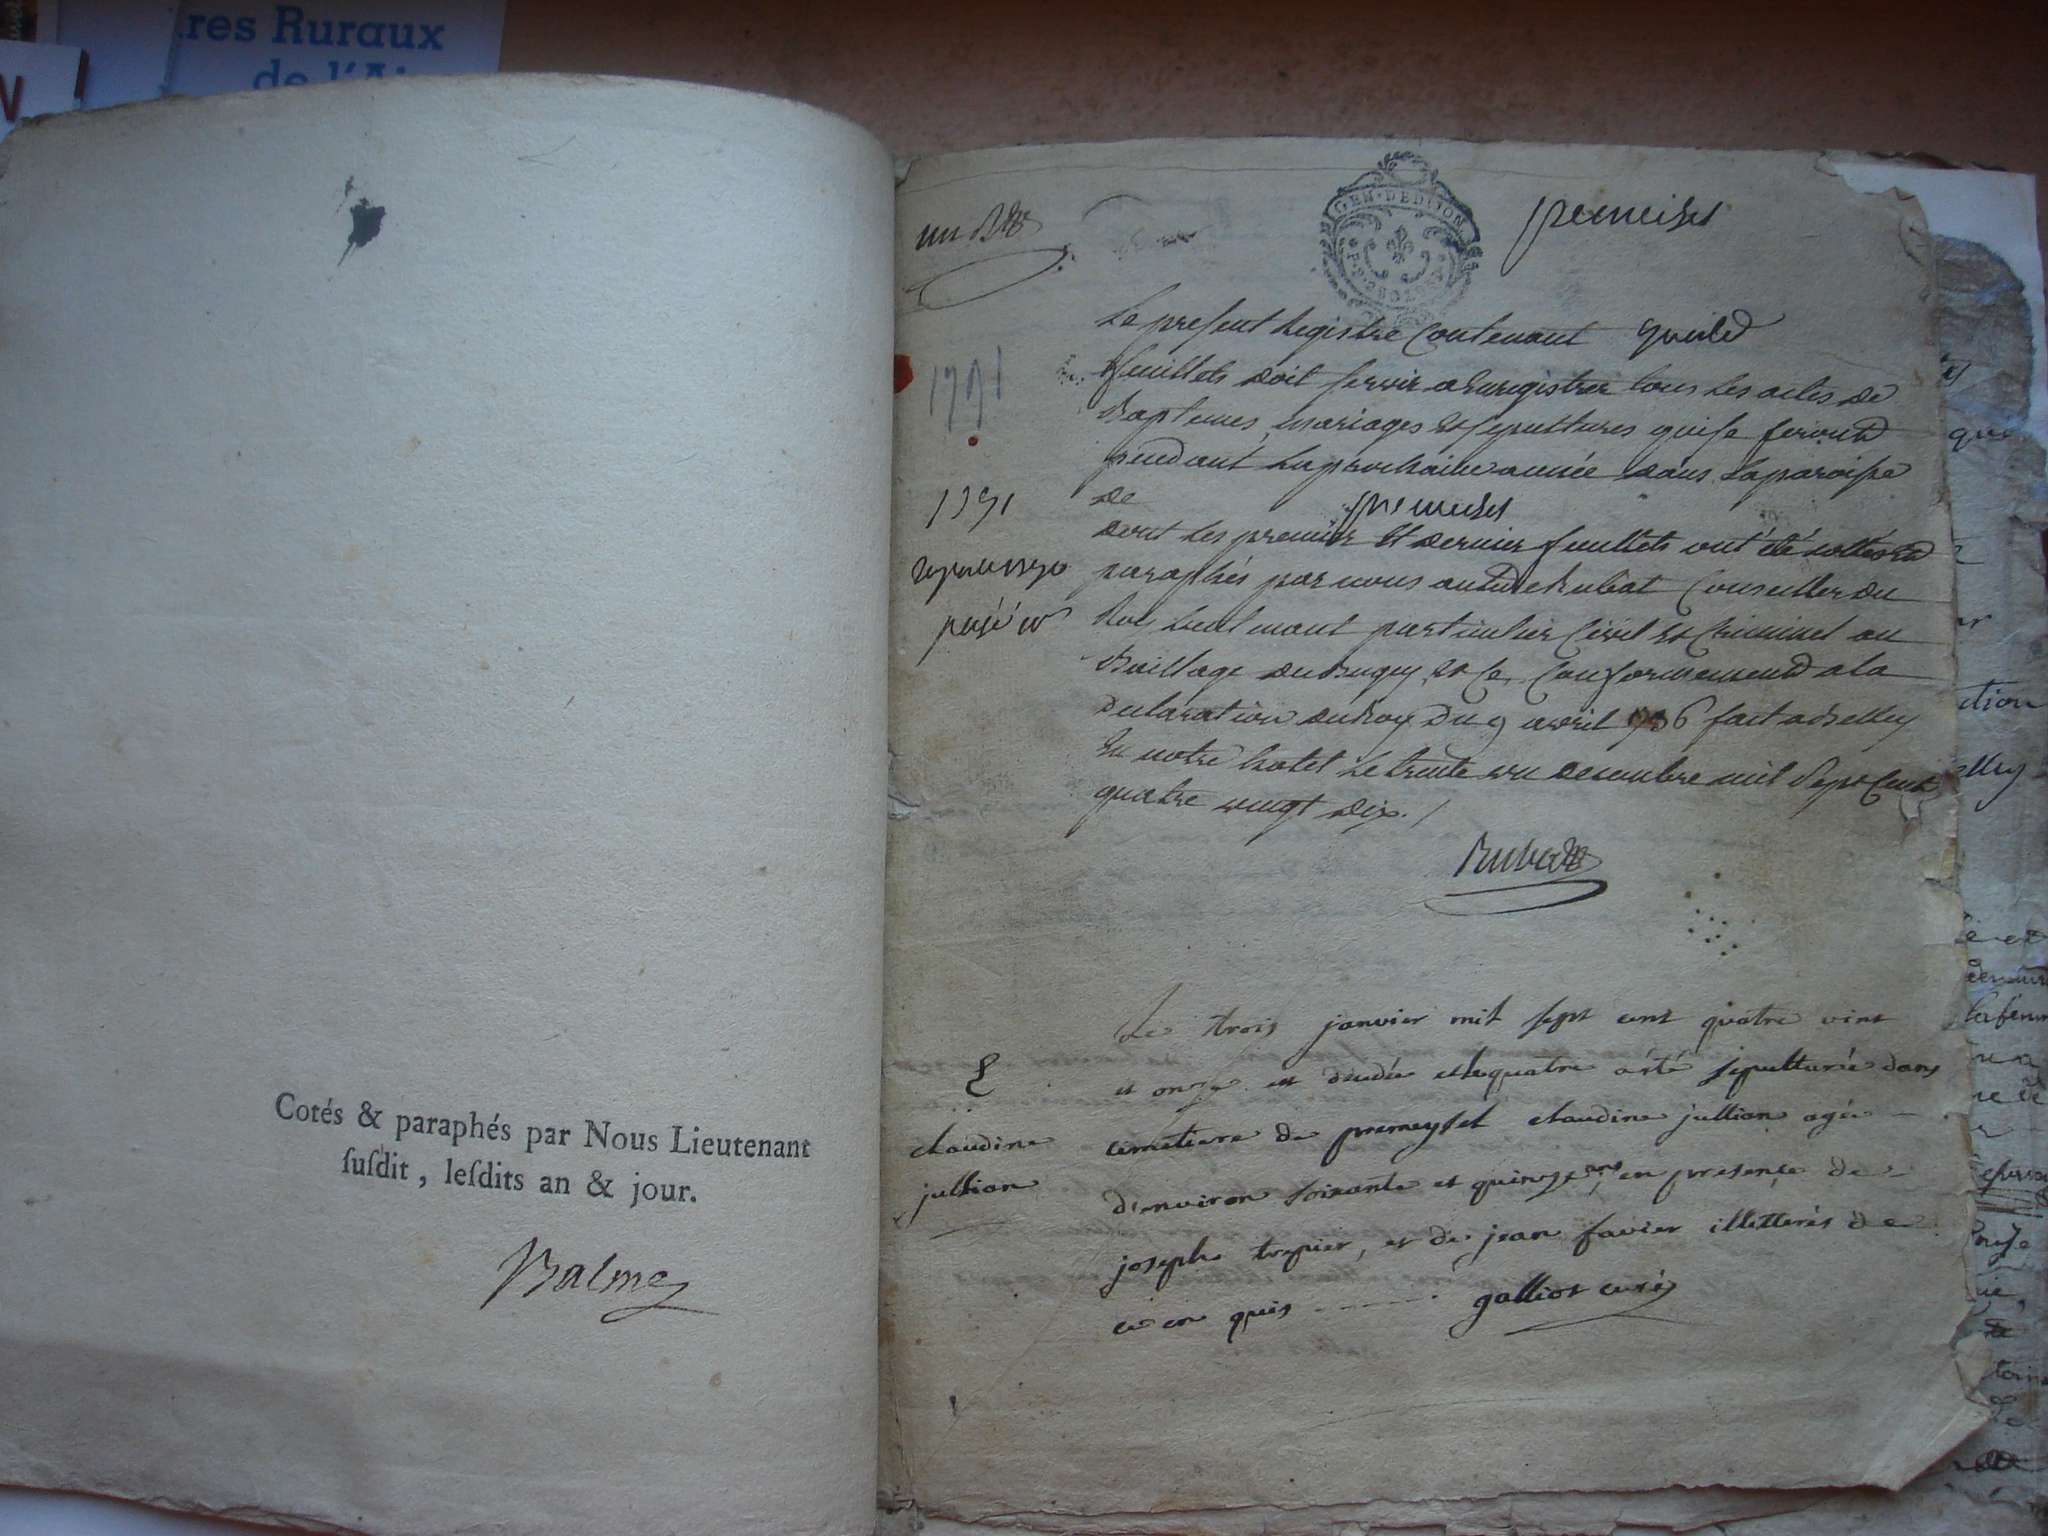 res Ruraux
de l'Ai
N
Cotés & paraphés par Nous Lieutenant
ſuſdit, leſdits an & jour.
Balme
un
GEN·DEDIJON
premeiset
Le present Registre Contenant
feuillets doit servir a Enregistrer tous les actes de
Baptemes, mariages et sepultures qui se feront
pendant la prochaine année dans la paroisse
de premeiset
dont les premier et dernier feuillets ont été cottés et
paraphés par nous Rubat Conseiller du
Roi Lieutenant particulier Civil et Criminel au
Baillage du Bugey, et ce, Conformement a la
declaration du Roy du 9 avril 1736 fait a Belley
En notre hotel le trente un decembre mil Sept Cent
quatre vingt dix./
Rubat
1791
1791
Le trois janvier mil sept cent quatre vint
et onze est décédée et le quatre a été sépulturée dans
cimetiere de premeyset claudine jullian agée
d'environ soixante et quinze ans, en presençe de
joseph trepier, et de jean favier illetterés de
ce en quis galliot curé
S
claudine
jullian